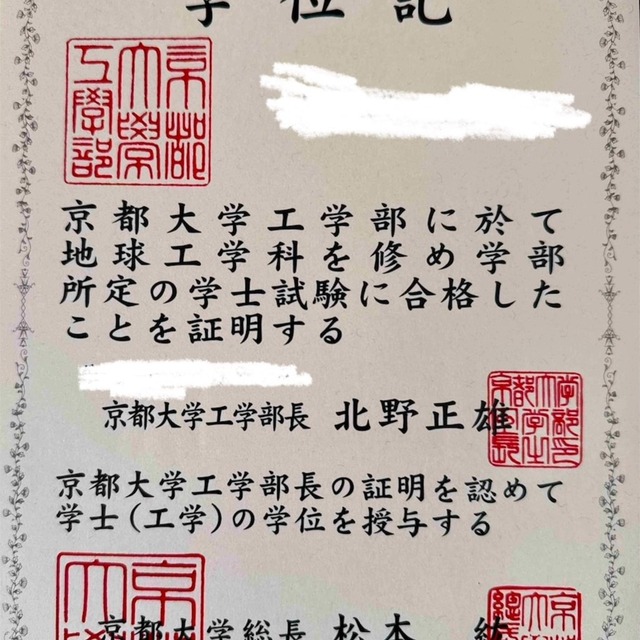 学位記
京都大学工学部
京都大学工学部に於て
地球工学科を修め学部
所定の学士試験に合格した
ことを証明する
京都大学工学部長 北野正雄
京都大学工学部長の証明を認めて
学士(工学)の学位を授与する
京都大学総長 松本 紘